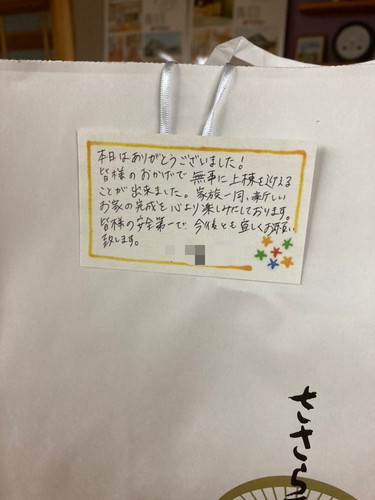 本日はありがとうございました！
皆様のおかげで無事に上棟を迎える
ことが出来ました。家族一同、新しい
お家の完成を心より楽しみにしております。
皆様の安全第一で今後とも宜しくお願い
致します。
ささら